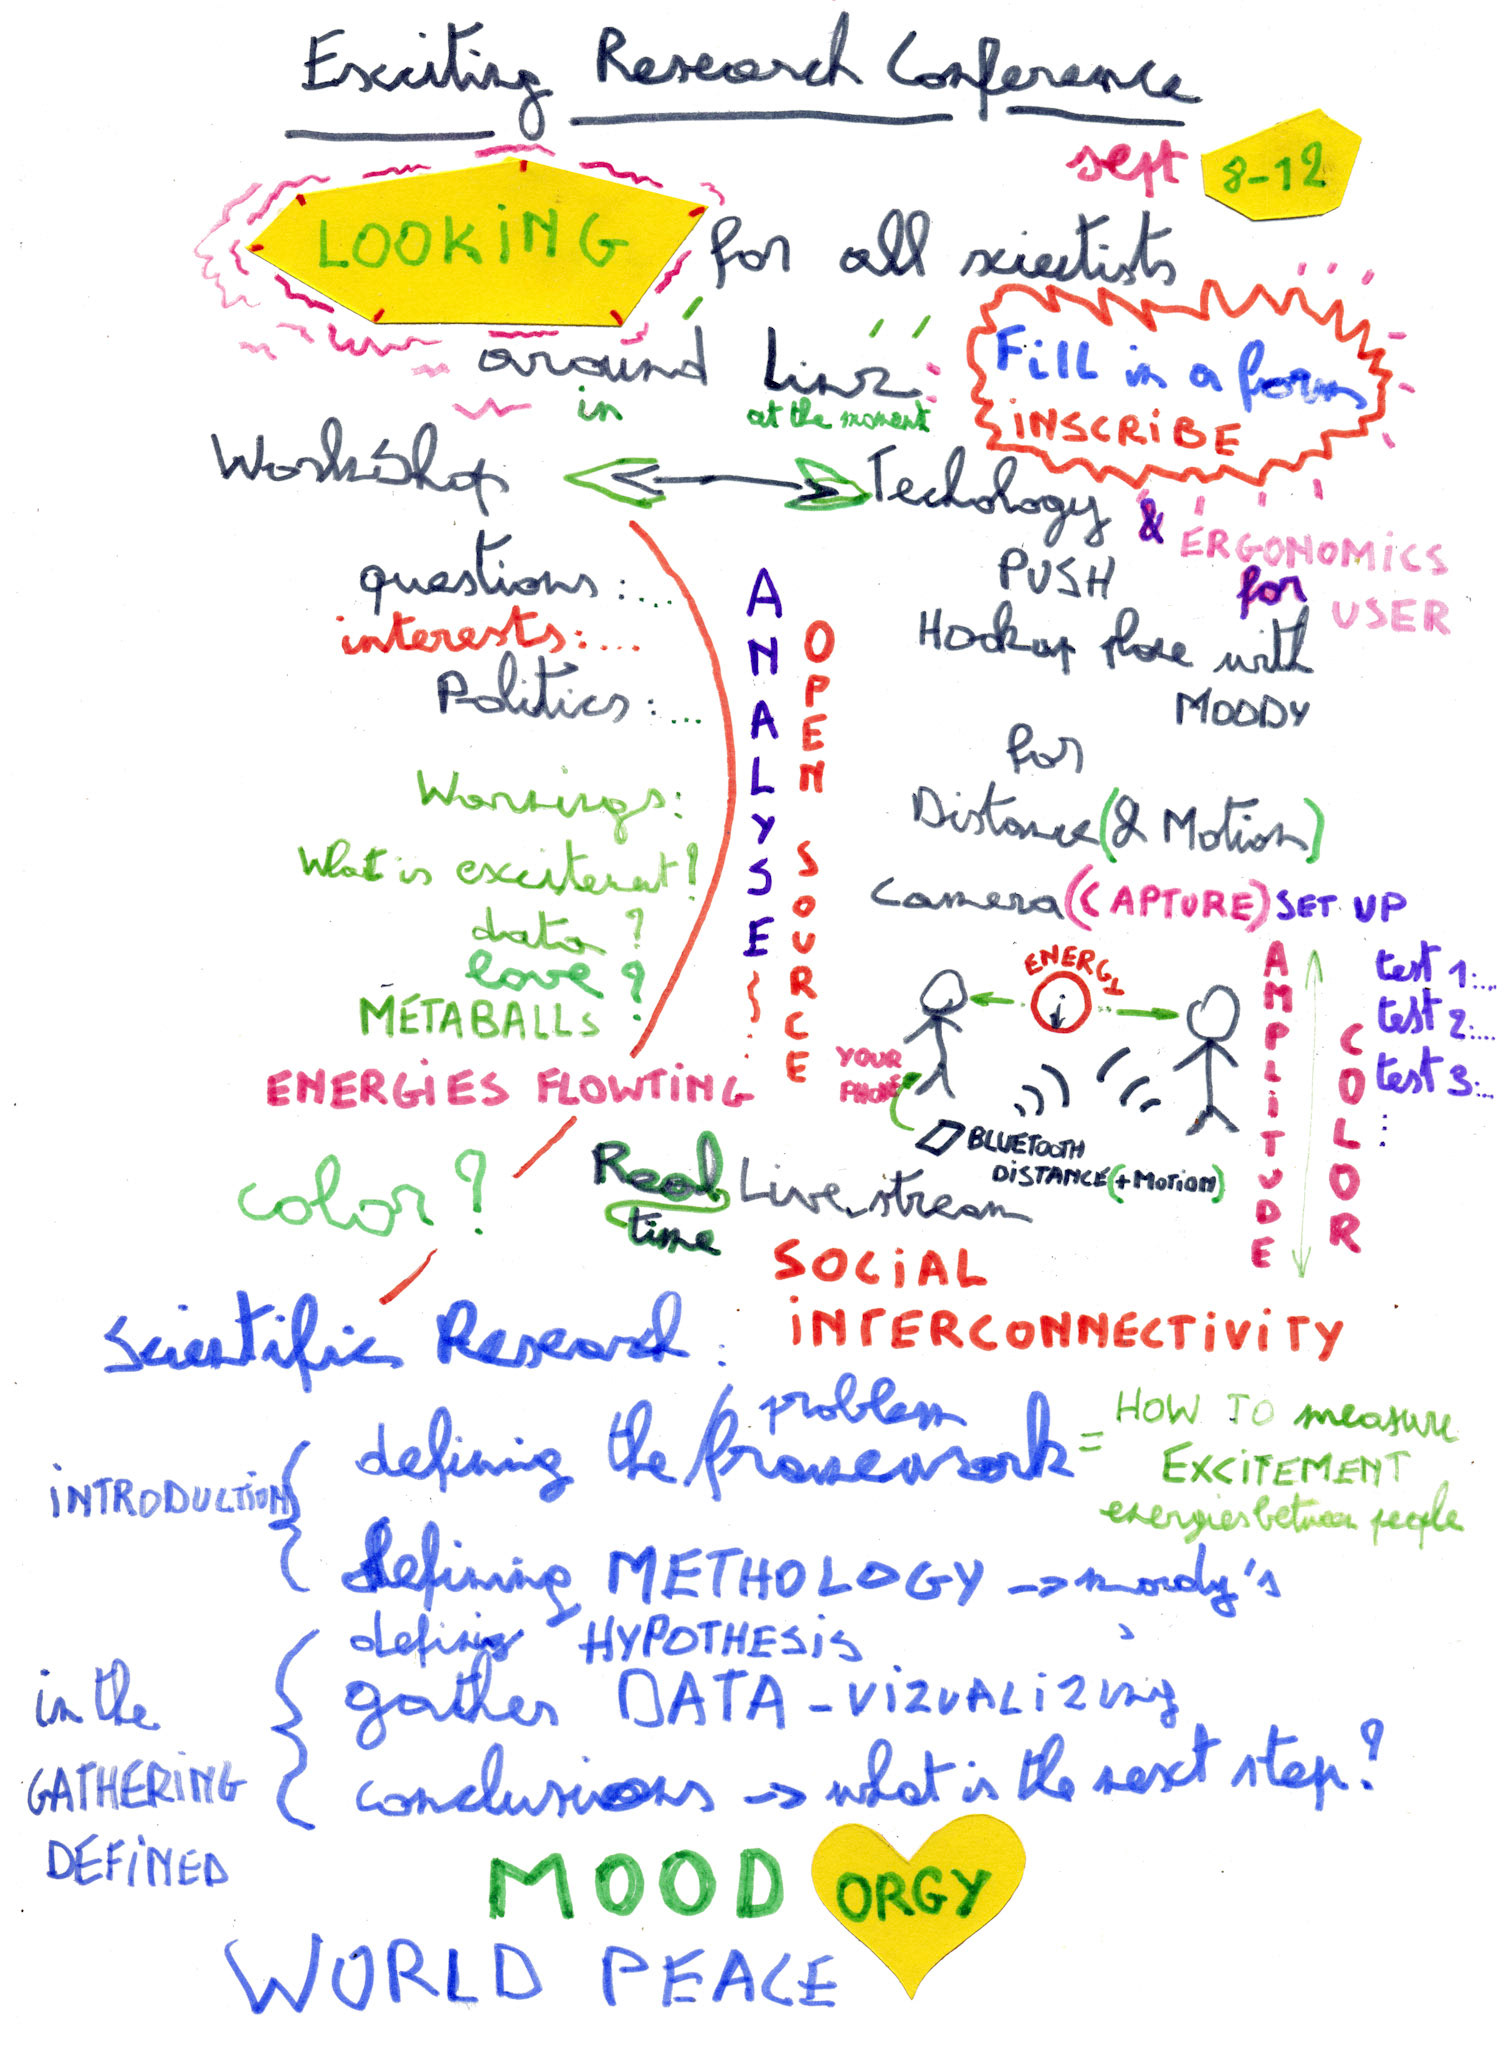 Exciting Research Conference
sept 8-12
LOOKING for all scietists
around Linz
in at the moment
Fill in a form
INSCRIBE
Workshop
Techology
& ERGONOMICS
for USER
questions:...
interests:...
Politics:...
Warnings:
What is exciterat?
data?
love?
METABALLS
ENERGIES FLOWTING
color?
ANALYSE
OPEN SOURCE
PUSH
Hookup phone with
MOODY
for
Distance (& Motion)
Camera (CAPTURE) SET UP
ENERGY
YOUR
PHONE
BLUETOOTH
DISTANCE (+MOTION)
AMPLITUDE
COLOR
test 1:...
test 2:...
test 3:...
Real
time
Live stream
SOCIAL
INTERCONNECTIVITY
Scientific Research:
INTRODUCTION
defining the problem/framework = HOW TO measure
EXCITEMENT
energies between people
defining METHOLOGY -> moody's
defining HYPOTHESIS
in the
GATHERING
DEFINED
gather DATA - VIZUALIZING
conclusions -> what is the next step?
MOOD ORGY
WORLD PEACE